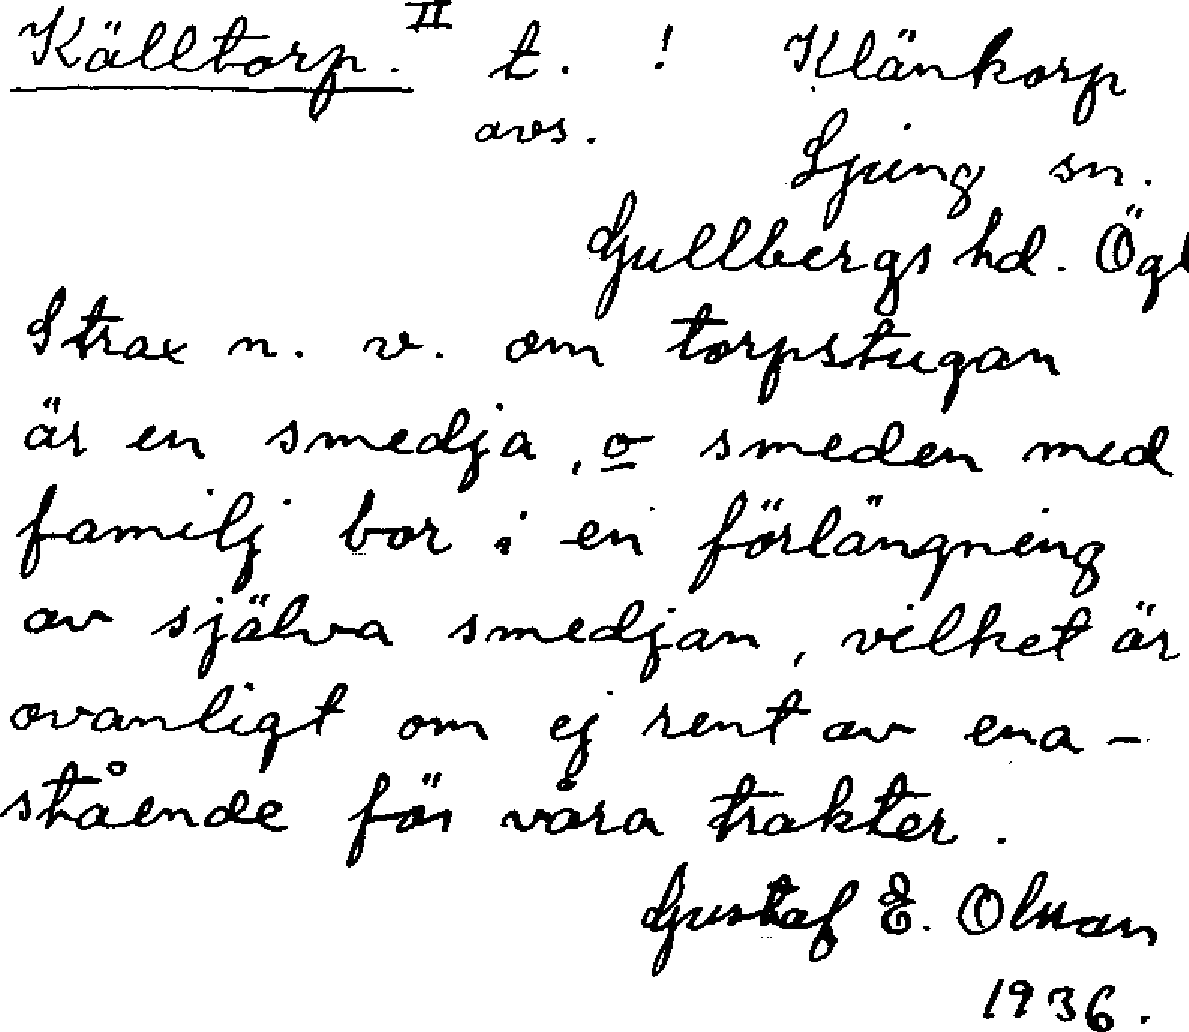 Källtorp. II t. ! Klänkorp
avs. Ljung sn.
Gullbergs hd. Ögl
Strax n. v. om torpstugan
är en smedja, o smeden med
familj bor i en förlängning
av själva smedjan, vilket är
ovanligt om ej rent av ena-
stående för våra trakter.
Gustaf E. Olman
1936.